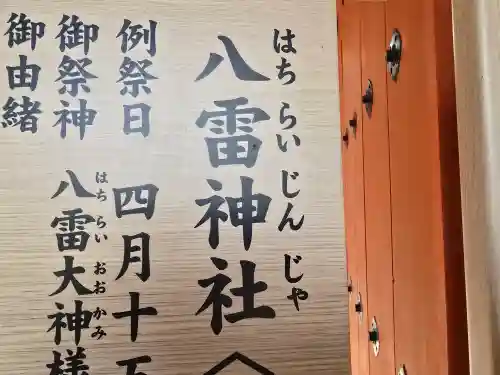 八雷神社
はち らい じん じゃ
例祭日 四月十五
御祭神 八雷大神様
はち らい おおかみ
御由緒